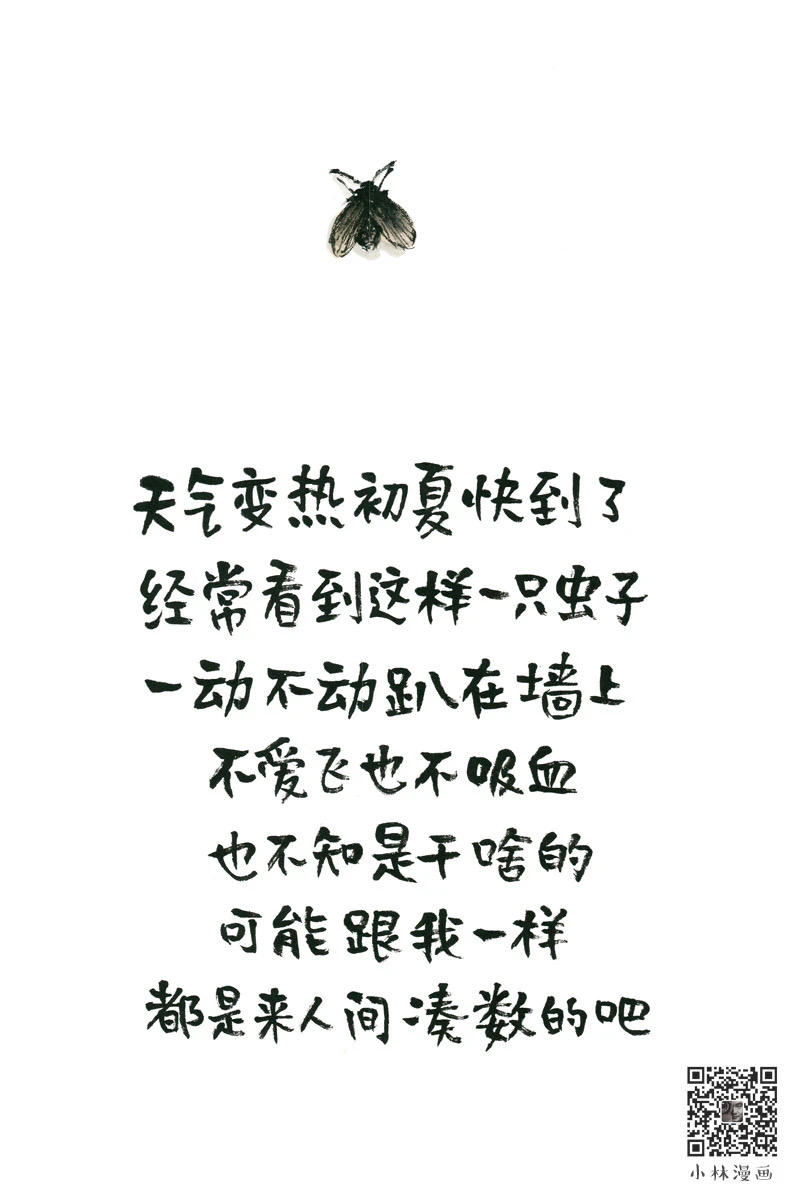 天气变热初夏快到了
经常看到这样一只虫子
一动不动趴在墙上
不爱飞也不吸血
也不知是干啥的
可能跟我一样
都是来人间凑数的吧
小林漫画